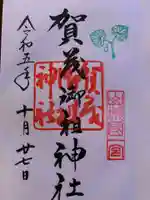 賀茂御祖神社
賀茂
神社
令和五年
十月廿七日